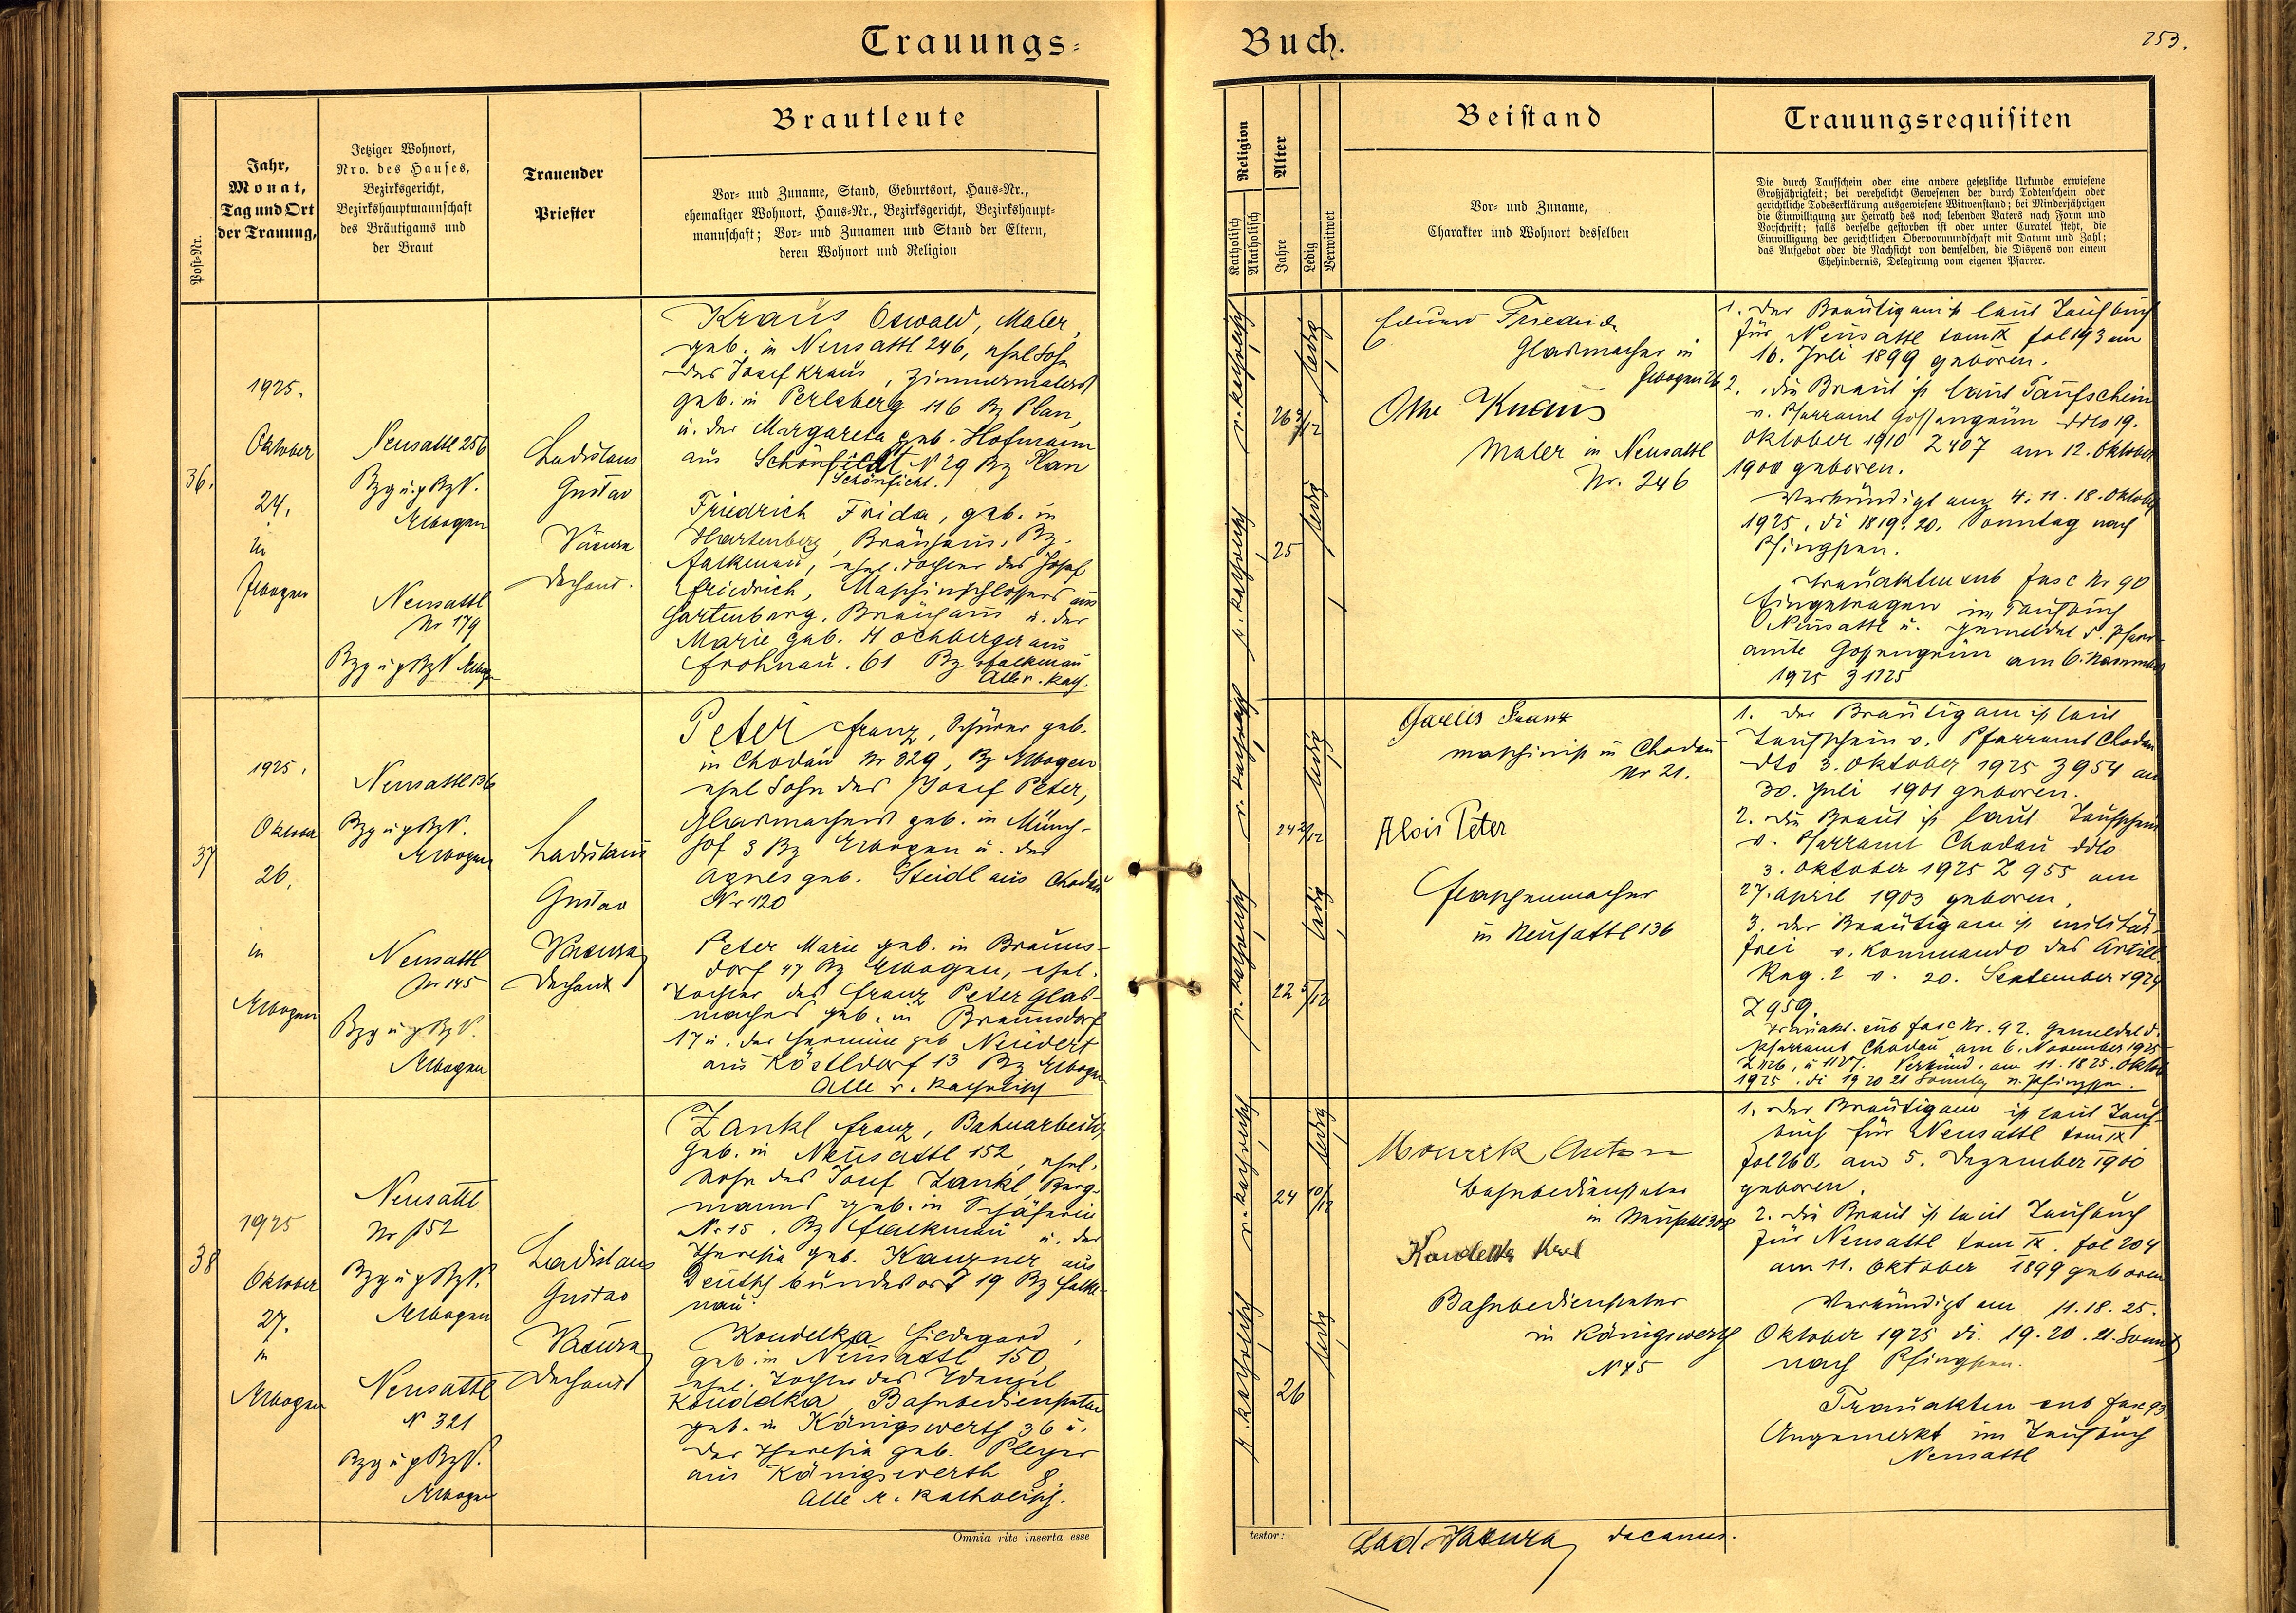 Trauungs-
Buch.
253.
Post-Nr.
Jahr,
Monat,
Tag und Ort
der Trauung,
Jetziger Wohnort,
Nro. des Hauses,
Bezirksgericht,
Bezirkshauptmannschaft
des Bräutigams und
der Braut
Trauender
Priester
Brautleute
Vor- und Zuname, Stand, Geburtsort, Haus-Nr.,
ehemaliger Wohnort, Haus-Nr., Bezirksgericht, Bezirkshaupt-
mannschaft; Vor- und Zunamen und Stand der Eltern,
deren Wohnort und Religion
Religion
Katholisch
Akatholisch
Alter
Jahre
Ledig
Verwitwet
Beistand
Vor- und Zuname,
Charakter und Wohnort desselben
Trauungsrequisiten
Die durch Taufschein oder eine andere gesetzliche Urkunde erwiesene
Großjährigkeit; bei verehelicht Gewesenen der durch Todtenschein oder
gerichtliche Todeserklärung ausgewiesene Witwenstand; bei Minderjährigen
die Einwilligung zur Heirath des noch lebenden Vaters nach Form und
Vorschrift; falls derselbe gestorben ist oder unter Curatel steht, die
Einwilligung der gerichtlichen Obervormundschaft mit Datum und Zahl;
das Aufgebot oder die Nachsicht von demselben, die Dispens von einem
Ehehindernis, Delegirung vom eigenen Pfarrer.
36.
1925.
Oktober
24.
in
Elbogen
Neusattl 256
Elbogen
Neusattl
Nr 179
Ladislaus
Gustav
Vacura
Dechant.
Kraus Oswald, Maler,
geb. in Neusattl 246, ehel Sohn
des Josef Kraus, Zimmermalers
geb. in Perlsberg 116 Bz Plan,
u. der Margareta geb. Hofmann
aus Schönficht N 29 Bz Plan
Schönficht.
Friedrich Frida, geb. in
Hartenberg, Bräuhaus, Bz.
Falkenau, ehel. Tochter des Josef
Friedrich, Maschinschlossers aus
Hartenberg, Bräuhaus u. der
Marie geb. Hochberger aus
Frohnau. 61 Bz Falkenau
Alle r. kath.
r. katholisch
r. katholisch
26 3/12
25
ledig
ledig
Eduard Friedrich
Glasmacher in
Elbogen
Kraus
Maler in Neusattl
Nr. 246
1. Der Bräutigam ist laut Taufbuch
für Neusattl tom IX fol 193 am
16. Juli 1899 geboren.
2. Die Braut ist laut Taufschein
v. Pfarramt Gossengrün ddto 19.
Oktober 1910 Z 407 am 12. Oktober
1900 geboren.
Verkündigt am 4. 11. 18. Oktober
1925, di 18 19. 20. Sonntag nach
Pfingsten.
Trauakten sub Fasc Nr 90
Eingetragen im Taufbuch
Neusattl u. gemeldet d. Pfarr-
amte Gossengrün am 6. November
1925 Z 1125
37
1925.
Oktober
26.
in
Elbogen
Neusattl 136
Elbogen
Neusattl
Nr 145
Elbogen
Ladislaus
Gustav
Vacura
Dechant
Peter Franz, Schürer geb.
in Chodau Nr 329, Bz Elbogen
ehel Sohn des Josef Peter,
Glasmachers geb. in Münch-
hof 3 Bz Elbogen u. der
Agnes geb. Steidl aus Chodau
Nr 120
Peter Marie geb. in Brauns-
dorf 47 Bz Elbogen, ehel.
Tochter des Franz Peter Glas-
machers geb. in Braunsdorf
17 u. der Hermine geb Neudert
aus Köstldorf 13 Bz Elbogen
Alle r. katholisch
r. katholisch
r. katholisch
24 2/12
22 5/12
ledig
ledig
Franz
Maschinist in Chodau
Nr 21.
Alois Peter
Flaschenmacher
in Neusattl 136
1. Der Bräutigam ist laut
Taufschein v. Pfarramt Chodau
dto 3. Oktober 1925 Z 954 am
30. Juli 1901 geboren.
2. Die Braut ist laut Taufschein
v. Pfarramt Chodau ddto
3. Oktober 1925 Z 955 am
27. April 1903 geboren,
3. Der Bräutigam ist militär-
frei v. Kommando des Artill.
Reg. 2 v. 20. September 1924
Z 959.
Trauakt. sub Fasc Nr. 92. Gemeldet d.
Pfarramt Chodau am 6. November 1925
Z 1126, u 1127. Verkünd. am 11. 18 25. Oktob
1925. di 19 20 21 Sonntag n. Pfingsten.
38
1925
Oktober
27.
in
Elbogen
Neusattl
Nr 152
Elbogen
Neusattl
N 321
Elbogen
Ladislaus
Gustav
Vacura
Dechant
Zankl Franz, Bahnarbeiter
Geb. in Neusattl 152, ehel.
Sohn des Josef Zankl, Berg-
manns geb. in Schäferei
N. 15. Bz Falkenau u. der
Theresia geb. Kauzner aus
19 Bz Falke-
nau.
Koudelka Hildegard,
geb in Neusattl 150,
ehel. Tochter des Wenzel
Koudelka, Bahnbediensteter
geb. in Königswerth 36 u.
der Theresia geb. Pleyer
aus Königswerth 8
Alle r. katholisch.
r. katholisch
r. katholisch
24 10/12
26
ledig
ledig
Mourek Anton
Bahnbediensteter
in Neusattl 308
Koudelka Karl
Bahnbediensteter
in Königswerth
N 45
1. Der Bräutigam ist laut Tauf-
buch für Neusattl tom IX
fol 260. am 5. Dezember 1900
geboren.
2. Die Braut ist laut Taufbuch
für Neusattl tom IX. fol 204
am 11. Oktober 1899 geboren
Verkündigt am 11. 18. 25.
Oktober 1925 di. 19. 20. 21. Sonntag
nach Pfingsten.
Trauakten sub Fasc 93
Angemerkt im Taufbuch
Neusattl
Omnia rite inserta esse
testor:
Lad. Vacura, decanus.